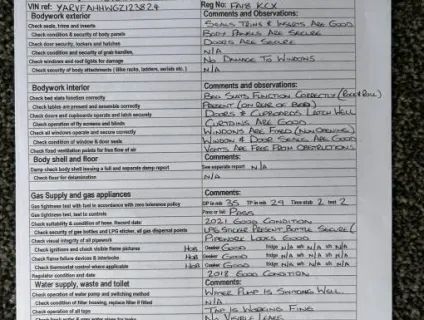 VIN ref: YARVFAHHWGZ123824 Reg No: FA18 KCX
Bodywork exterior Comments and Observations:
Check seals, trims and inserts SEALS TRIMS & INSERTS ARE GOOD
Check condition & security of body panels BODY PANELS ARE SECURE
Check door security, lockers and hatches DOORS ARE SECURE
Check condition and security of grab handles, N/A
Check windows and roof lights for damage NO DAMAGE TO WINDOWS
Check security of body attachments ( bike racks, ladders, aerials etc. ) N/A
Bodywork interior Comments and observations:
Check bed slats function correctly BED SEATS FUNCTION CORRECTLY (ROCK & ROLL)
Check tables are present and assemble correctly PRESENT (ON REAR OF BED)
Check doors and cupboards operate and latch securely DOORS & CUPBOARDS LATCH WELL
Check operation of fly screens and blinds CURTAINS ARE GOOD
Check all windows operate and secure correctly WINDOWS ARE FIXED (NON OPENING)
Check condition of window & door seals WINDOW & DOOR SEALS ARE GOOD
Check fixed ventilation points for free flow of air VENTS ARE FREE FROM OBSTRUCTIONS
Body shell and floor Comments:
Damp check body shell leaving a full and separate damp report See separate report N/A
Check floor for delamination N/A
Gas Supply and gas appliances Comments:
Gas tightness test with fuel in accordance with zero tolerance policy OP in mb 35 TP in mb 29 Time stab 2 test 2
Gas tightness test, test to controls Pass or fail PASS
Check suitability & condition of hose. Record date: 2021 GOOD CONDITION
Check security of gas bottles and LPG sticker, all gas dispersal points LPG STICKER PRESENT, BOTTLE SECURE
Check visual integrity of all pipework PIPEWORK LOOKS GOOD
Check ignitions and check visible flame pictures HOB Cooker GOOD fridge N/A wh N/A sh N/A
Check flame failure devices & interlocks HOB Cooker GOOD fridge N/A wh N/A sh N/A
Check thermostat control where applicable HOB Cooker GOOD fridge N/A wh N/A sh N/A
Regulator condition and date 2018 GOOD CONDITION
Water supply, waste and toilet Comments:
Check operation of water pump and switching method WATER PUMP IS SWITCHING WELL
Check condition of filter housing, replace filter if fitted N/A
Check operation of all taps TAP IS WORKING FINE
NO VISIBLE LEAKS